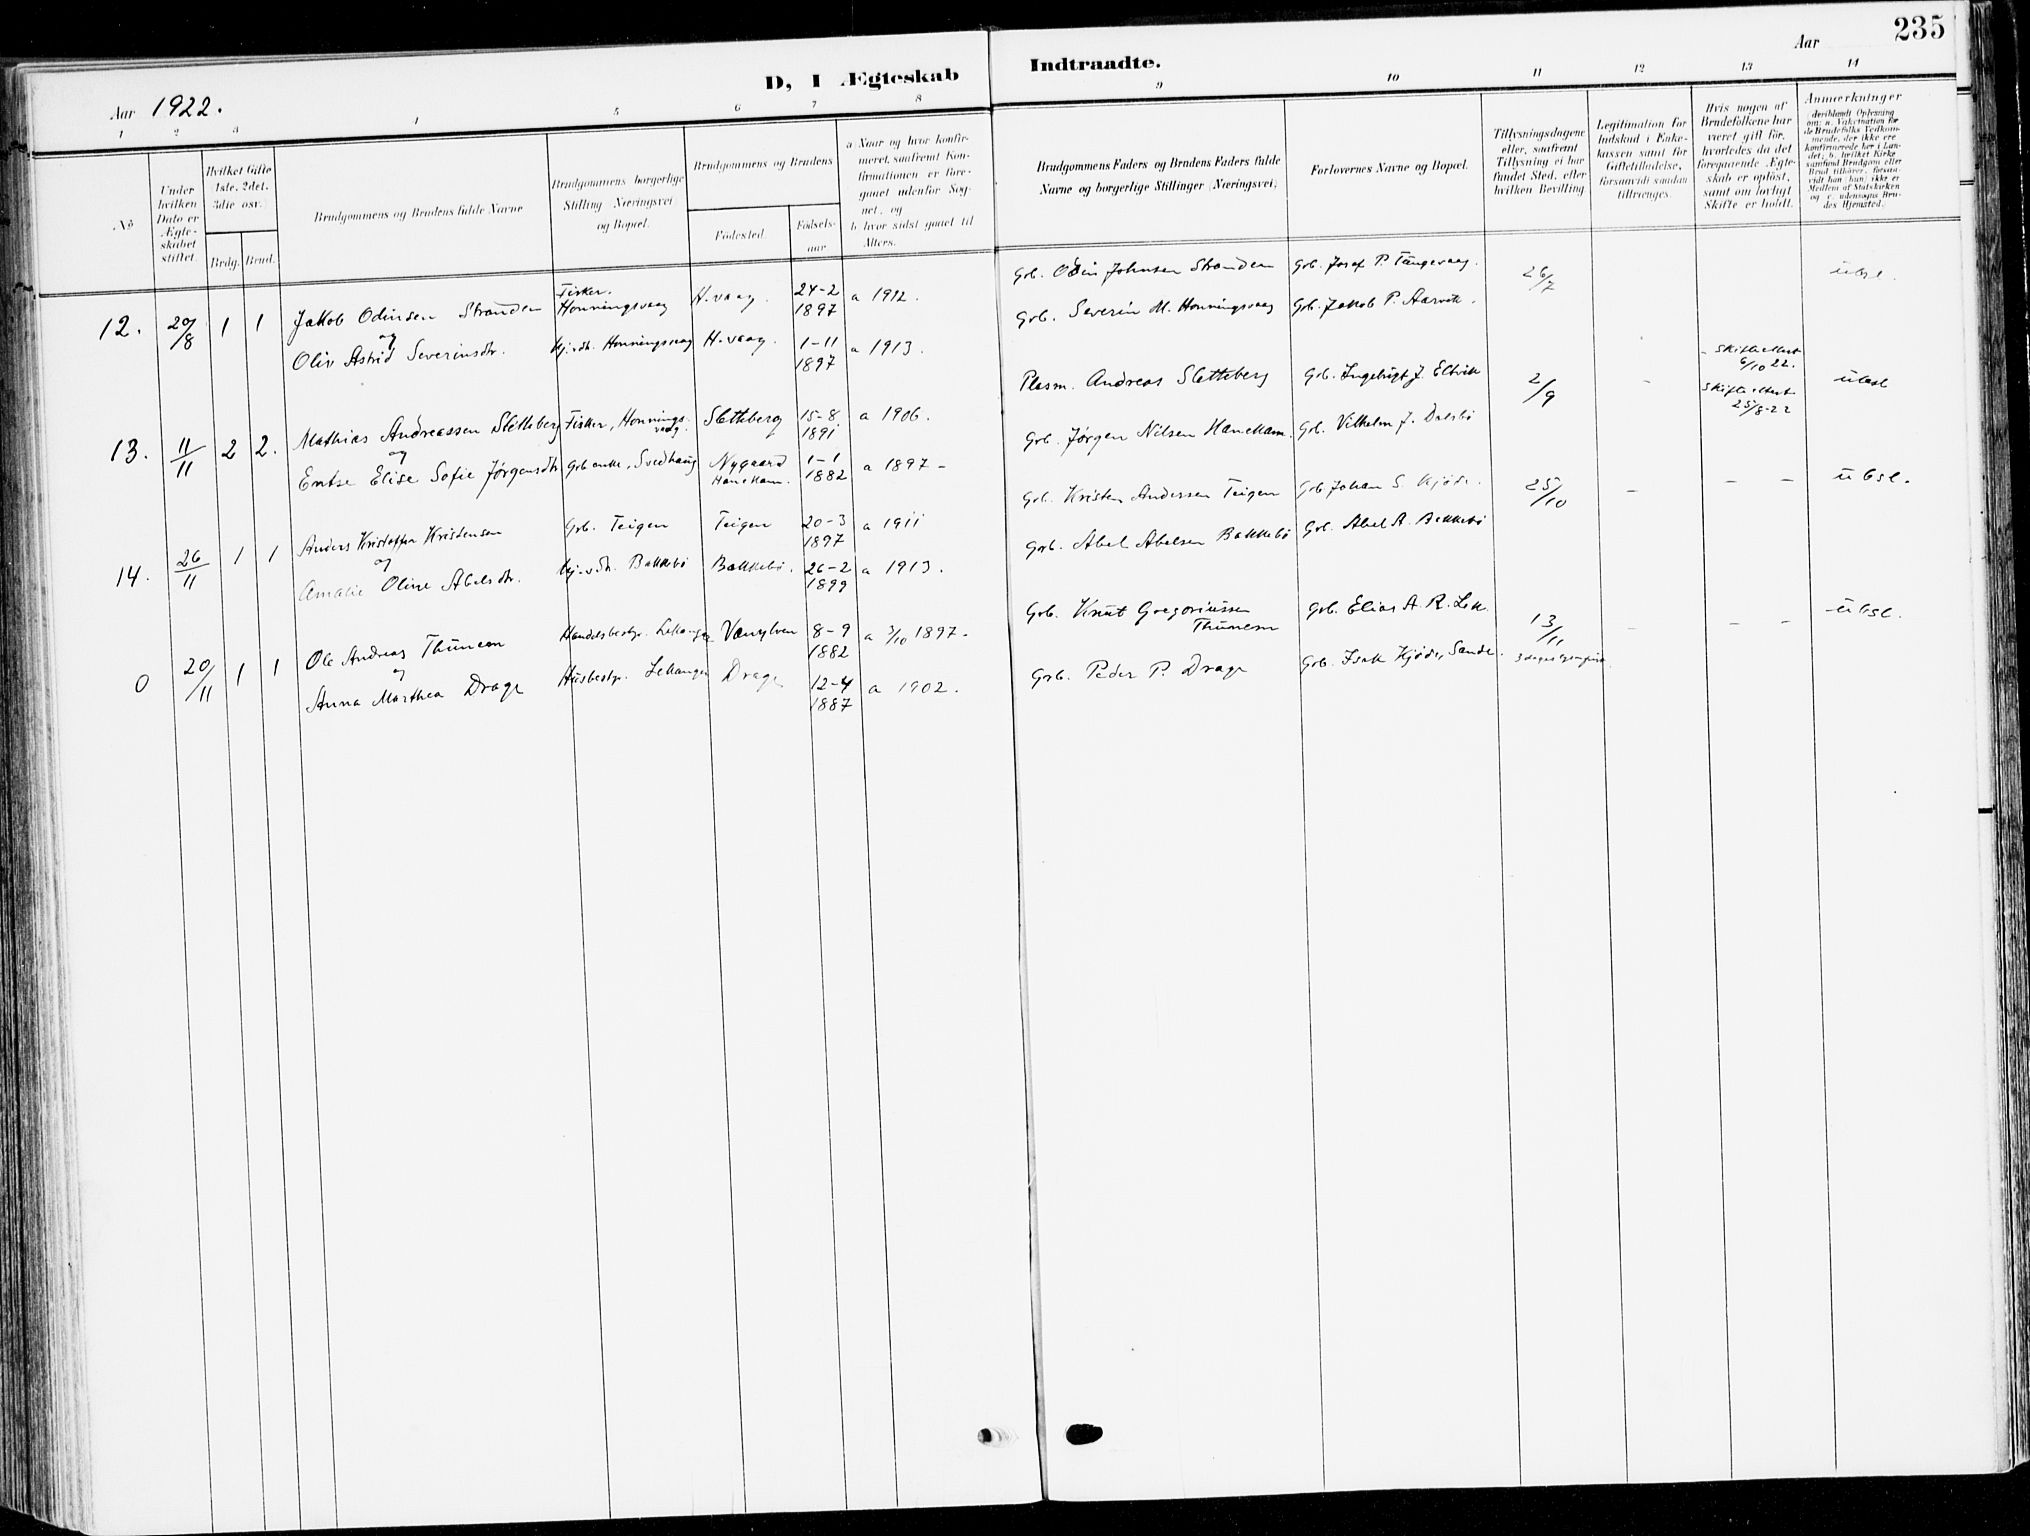 235
D, I Ægteskab Indtraadte.
Aar 1922.
Aar
1 2 3 4 5 6 7 8 9 10 11 12 13 14
No
Under hvilken Dato er Ægteskabet stiftet.
Hvilket Gifte 1ste, 2det, 3die osv.
Brdg. Brud.
Brudgommens og Brudens fulde Navne
Brudgommens borgerlige Stilling (Næringsvei) og Bopæl.
Brudgommens og Brudens
Fødested.
Fødselsaar
a) Naar og hvor konfirmeret, saafremt Konfirmationen er foregaaet udenfor Sognet, og
b) hvor sidst gaaet til Alters.
Brudgommens Faders og Brudens Faders fulde Navne og borgerlige Stillinger (Næringsvei)
Forlovernes Navne og Bopæl.
Tillysningsdagene eller, saafremt Tillysning ei har fundet Sted, efter hvilken Bevilling
Legitimation for Indskud i Enkekassen samt for Giftetilladelse, forsaavidt saadan tiltrænges.
Hvis nogen af Brudefolkene har været gift før, hvorledes da det foregaaende Ægteskab er opløst, samt om lovligt Skifte er holdt.
Anmærkninger
(deriblandt Oplysning om: a. Vakcination for de Brudefolks Vedkommende, der ikke ere konfirmerede her i Landet; b. hvilket Kirkesamfund Brudgom eller Brud tilhører, forsaavidt han (hun) ikke er Medlem af Statskirken og c. udensogns Brudes Hjemsted.)
12. 20/8 1 1 Jakob Odinsen Stranden Fisker. Honningsvaag H.vaag. 24-2 1897 a 1912. Grb. Odin Johnsen Stranden Grb. Josef P. Tangevaag. 26/7 ubsl.
og
Oliv Astrid Severinsdtr. Hj.v.dtr. Honningsvaag H.vaag. 1-11 1897 a 1913. Grb. Severin M. Honningsvaag Grb. Jakob P. Aarvik.
13. 11/11 2 2. Mathias Andreassen Sletteberg Fisker, Honningsvaag. Sletteberg 15-8 1891 a 1906. Plasm. Andreas Sletteberg Grb. Ingebrigt J. Eltvik 2/9 - - Skifteattest 6/10 22. ubesl
og
Elise Sofie Jørgensdtr Grb enke, Svedhaug Nygaard Hanekam. 1-1 1882 a 1897 - Grb. Jørgen Nilsen Hanekam. Grb. Vilhelm J. Dalsbø Skifteattest 25/8-22
14. 26/11 1 1 Anders Kristoffer Kristensen Grb. Teigen Teigen 20-3 1897 a 1911 Grb. Kristen Anderssen Teigen Grb. Johan S. Kjøde. 25/10 - - - ubsl.
og
Amalie Olive Abelsdtr. Hj.v.dtr. Bakkebø Bakkebø. 26-2 1899 a 1913. Grb. Abel Abelsen Bakkebø Grb. Abel A. Bakkebø
0 20/11 1 1 Ole Andreas Thunem Handelsbestyr. Lekanger Vanylven 8-9 1882 a 3/10 1897. Grb. Knut Gregoriussen Thunem Grb. Elias A. R. 13/11 - - - ubsl.
og
Anna Marthea Drage Husbestyr. Lekanger Drage 12-4 1887 a 1902. Grb. Peder P. Drage Grb. Isak Kjøde, Sande.